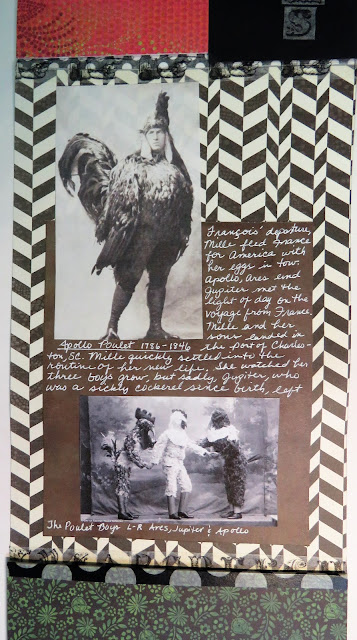 François' departure,
Mille fled France
for America with
her eggs in tow.
Apollo, Ares and
Jupiter met the
light of day on the
voyage from France.
Mille and her
sons landed in
Apollo Poulet 1786-1846
the port of Charles-
ton, SC. Mille quickly settled into the
routine of her new life. She watched her
three boys grow, but sadly, Jupiter, who
was a sickly cockerel since birth, left
The Poulet Boys L-R Ares, Jupiter & Apollo